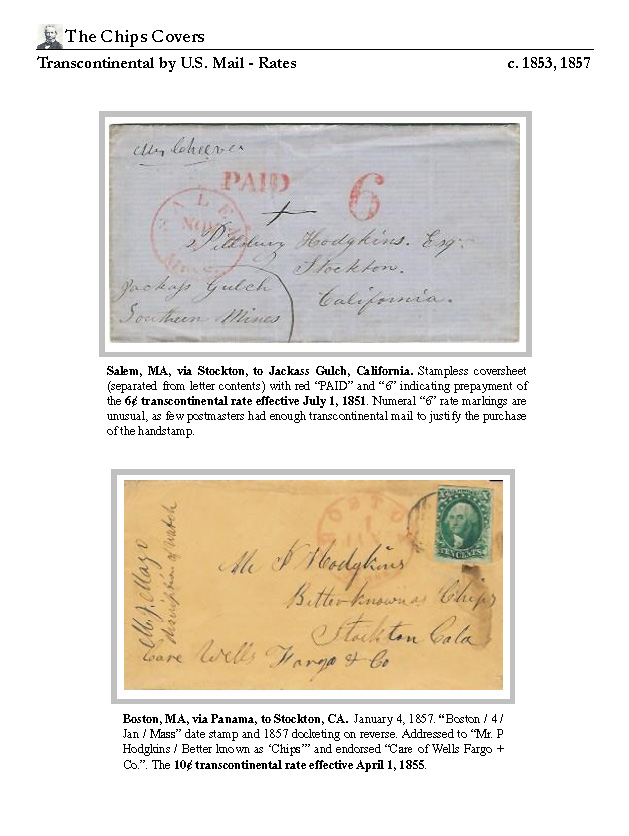 The Chips Covers
Transcontinental by U.S. Mail - Rates c. 1853, 1857
PAID 6
SALEM
NOV
MASS.
Pillsbury Hodgkins. Esqr.
Stockton.
California.
Jackass Gulch
Southern Mines
Salem, MA, via Stockton, to Jackass Gulch, California. Stampless coversheet
(separated from letter contents) with red “PAID” and “6” indicating prepayment of
the 6¢ transcontinental rate effective July 1, 1851. Numeral “6” rate markings are
unusual, as few postmasters had enough transcontinental mail to justify the purchase
of the handstamp.
BOSTON
JAN
TEN CENTS
M. J. Mayo
description of watch
Mr P Hodgkins
Better known as Chips
Stockton Cala
Care Wells Fargo & Co
Boston, MA, via Panama, to Stockton, CA. January 4, 1857. “Boston / 4 /
Jan / Mass” date stamp and 1857 docketing on reverse. Addressed to “Mr. P
Hodgkins / Better known as ‘Chips’” and endorsed “Care of Wells Fargo +
Co.”. The 10¢ transcontinental rate effective April 1, 1855.